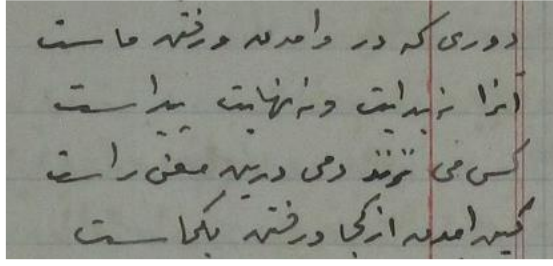 دوری که در و آمدن و رفتن ماست
آنرا نه بدایت و نه نهایت پیداست
کس می نزند دمی درین معنی راست
کین آمدن از کجا و رفتن بکجاست